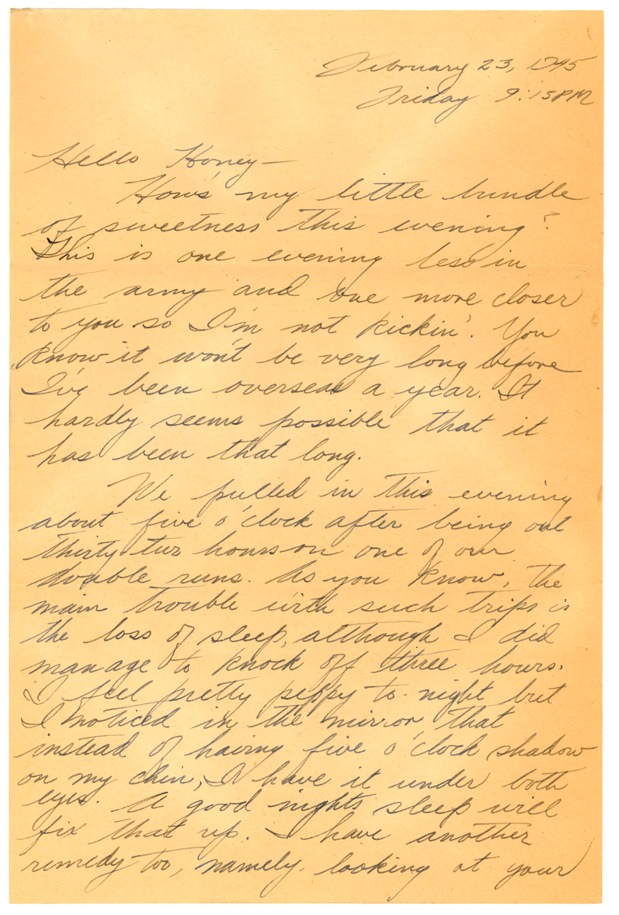 February 23, 1945
Friday 9:15PM
Hello Honey—
How's my little bundle
of sweetness this evening?
This is one evening less in
the army and one more closer
to you so I'm not kickin'. You
know it won't be very long before
I've been overseas a year. It
hardly seems possible that it
has been that long.
We pulled in this evening
about five o'clock after being out
thirty two hours on one of our
double runs. As you know, the
main trouble with such trips is
the loss of sleep, although I did
manage to knock off three hours.
I feel pretty peppy to-night but
I noticed in the mirror that
instead of having five o'clock shadow
on my chin, I have it under both
eyes. A good nights sleep will
fix that up. I have another
remedy too, namely, looking at your